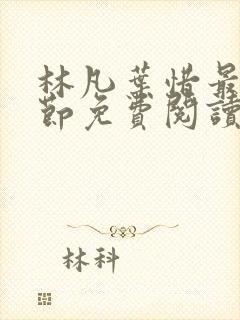 林凡葉惜最
節免費閱讀
林科